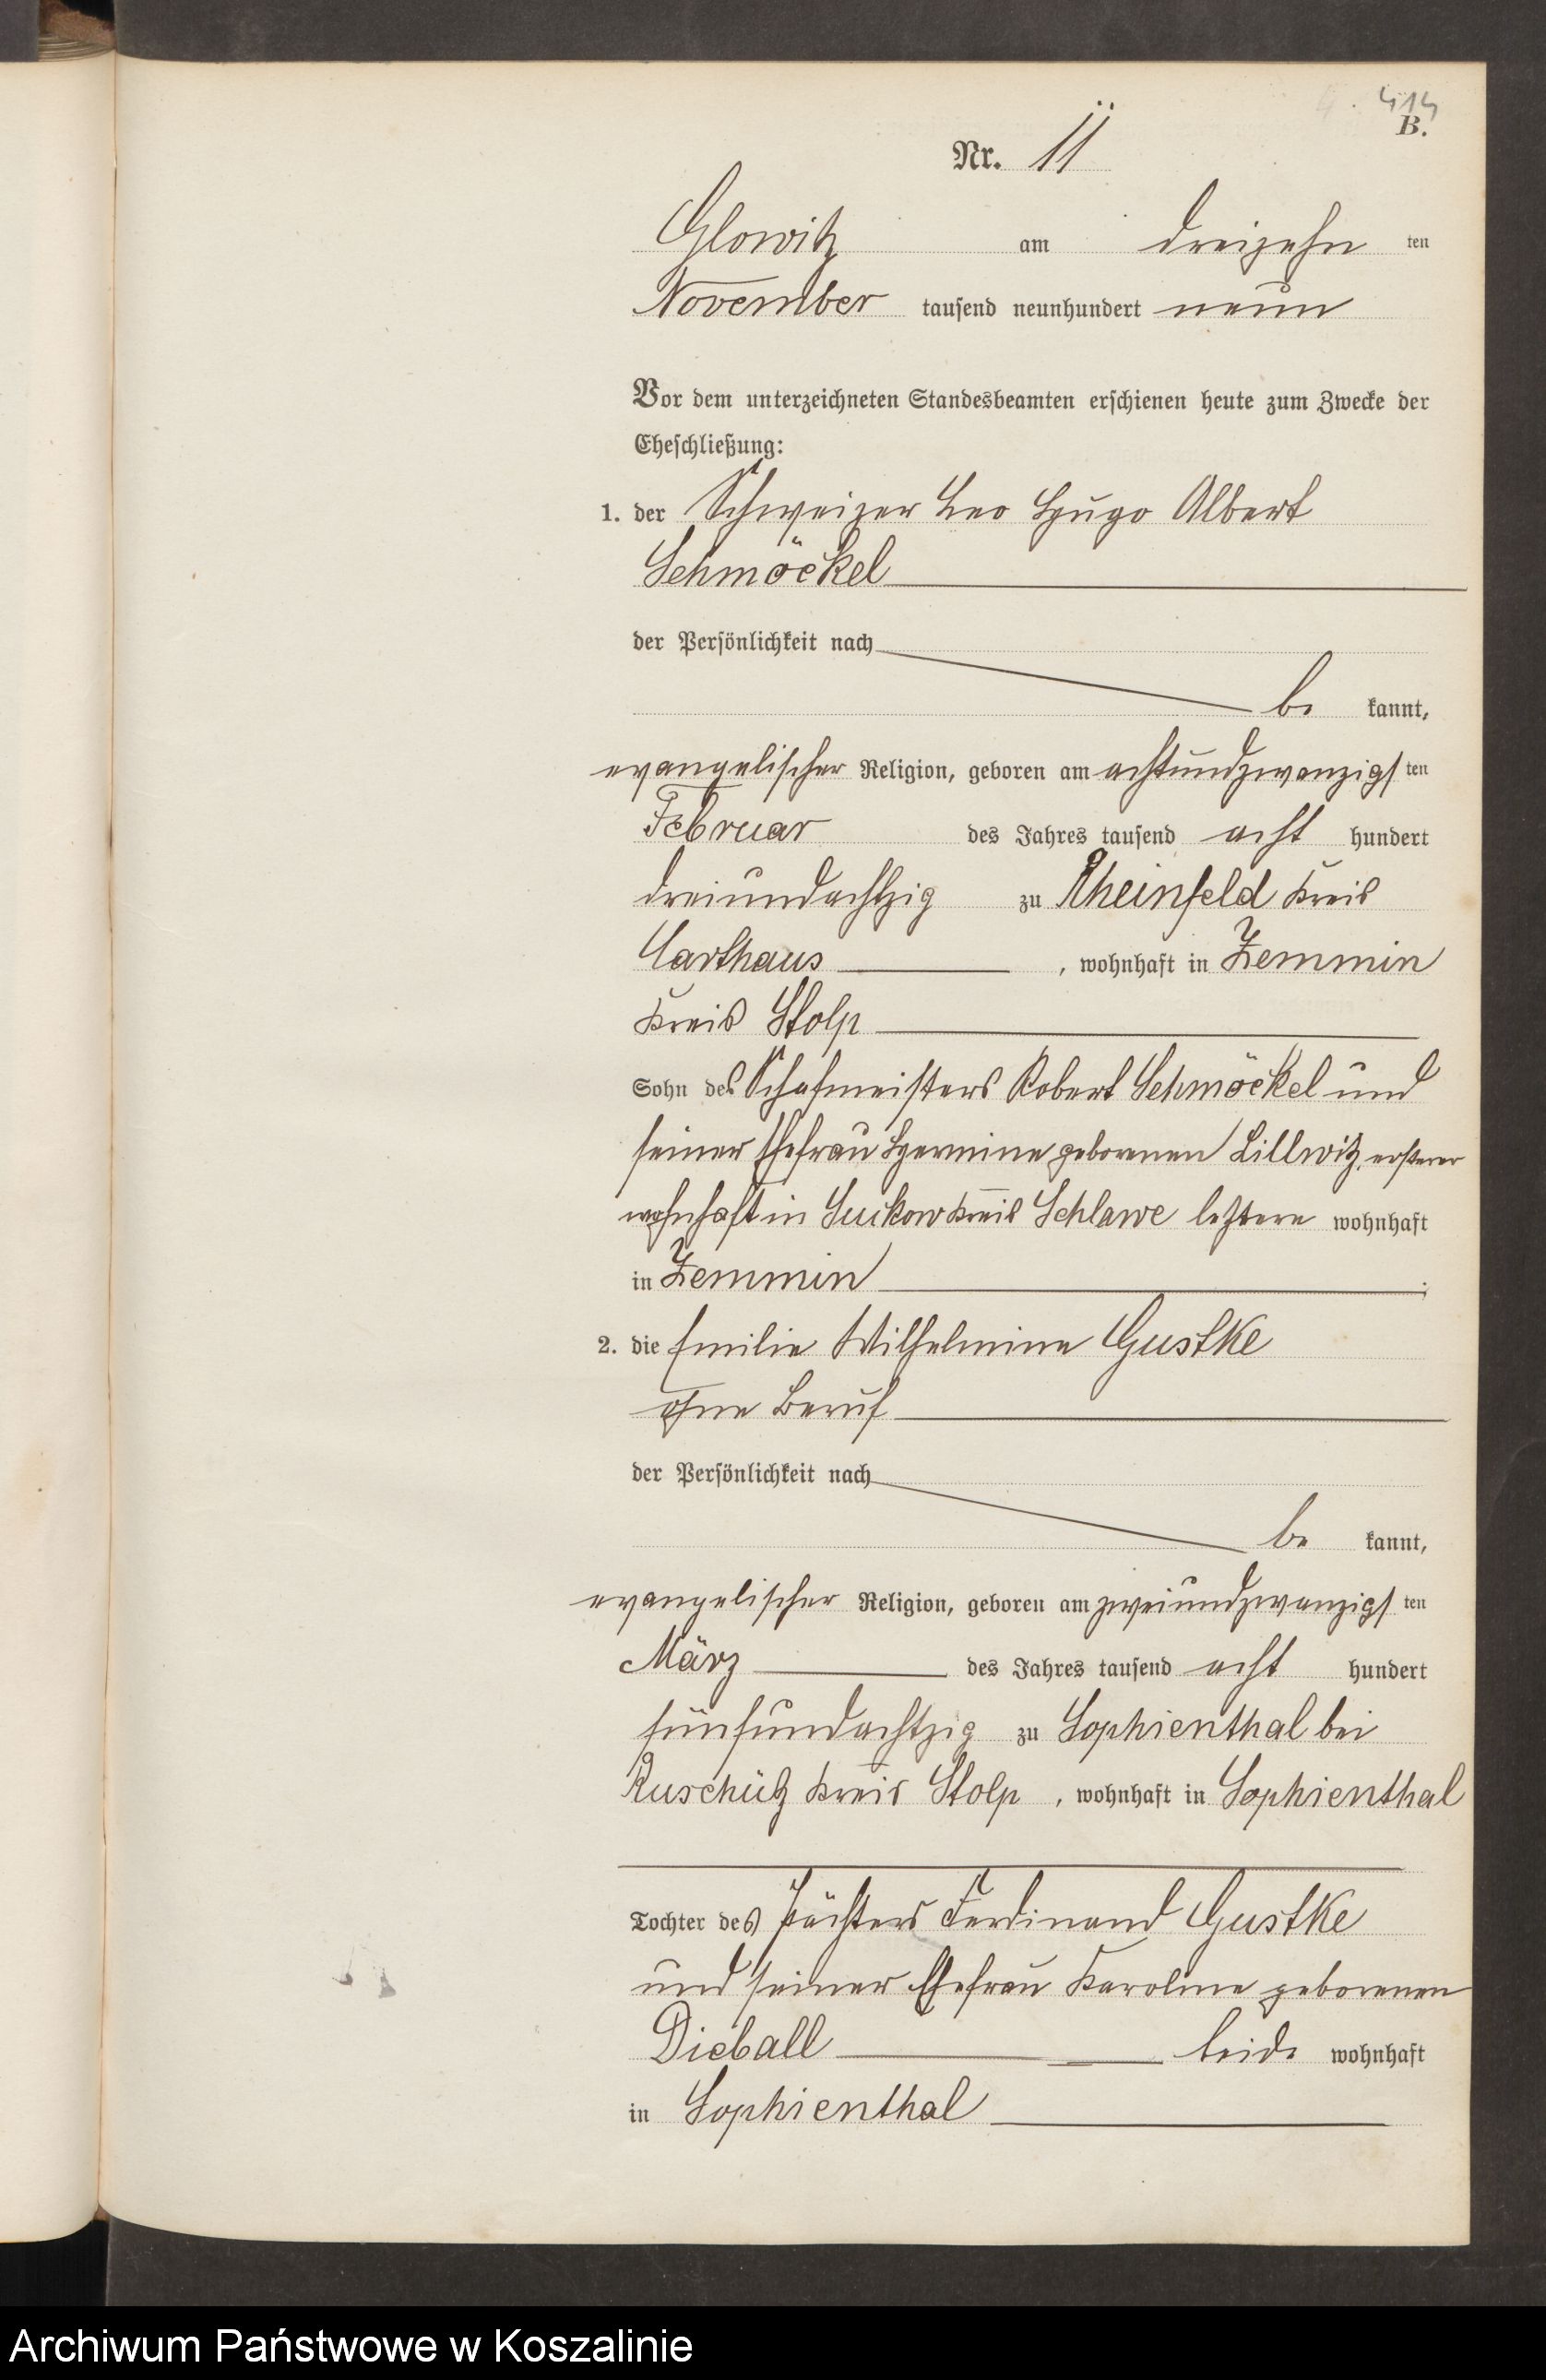 414
B.
Nr. 11
Glowitz am dreizehn ten
November tausend neunhundert neun
Vor dem unterzeichneten Standesbeamten erschienen heute zum Zwecke der
Eheschließung:
1. der Schweizer Leo Hugo Albert
Schmöckel
der Persönlichkeit nach
be kannt,
evangelischer Religion, geboren am achtundzwanzigs ten
Februar des Jahres tausend acht hundert
dreiundachtzig zu Rheinfeld Kreis
Carthaus , wohnhaft in Zemmin
Kreis Stolp
Sohn des Schafmeisters Robert Schmöckel und
seiner Ehefrau Hermine geborenen Lillwitz, ersterer
wohnhaft in Suckow Kreis Schlawe letztere wohnhaft
in Zemmin ;
2. die Emilie Wilhelmine Gustke
ohne Beruf
der Persönlichkeit nach
be kannt,
evangelischer Religion, geboren am zweiundzwanzigs ten
März des Jahres tausend acht hundert
fünfundachtzig zu Sophienthal bei
Ruschütz Kreis Stolp , wohnhaft in Sophienthal
Tochter des Pächters Ferdinand Gustke
und seiner Ehefrau Karoline geborenen
Dieball beide wohnhaft
in Sophienthal
Archiwum Państwowe w Koszalinie